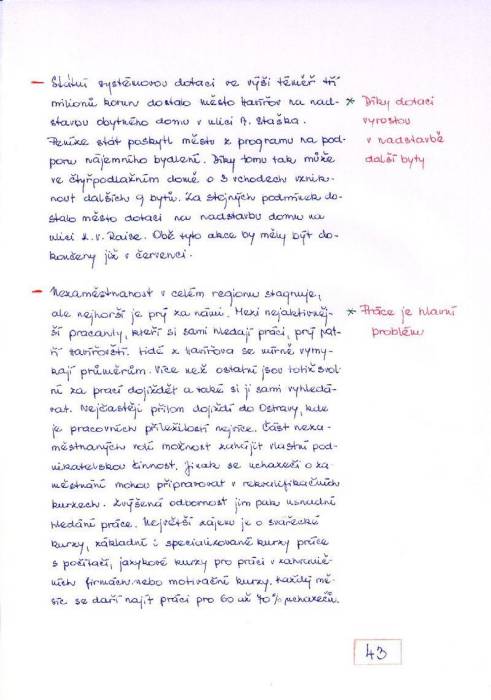 – Státní systémovou dotaci ve výši téměř tří
milionů korun dostalo město Havířov na nad-
stavbu obytného domu v ulici A. Staška.
Peníze stát poskytl městu z programu na pod-
poru nájemního bydlení. Díky tomu tak může
ve čtyřpodlažním domě o 3 vchodech vznik-
nout dalších 9 bytů. Za stejných podmínek do-
stalo město dotaci na nadstavbu domu na
ulici K. V. Raise. Obě tyto akce by měly být do-
končeny již v červenci.
* Díky dotaci
vyrostou
v nadstavbě
další byty
– Nezaměstnanost v celém regionu stagnuje,
ale nejhorší je prý za námi. Mezi nejaktivněj-
ší pracanty, kteří si sami hledají práci, prý pat-
ří havířovští. Lidé z Havířova se mírně vymy-
kají průměrům. Více než ostatní jsou totiž svol-
ní za prací dojíždět a také si ji sami vyhledá-
vat. Nejčastěji přitom dojíždí do Ostravy, kde
je pracovních příležitostí nejvíce. Část neza-
městnaných volí možnost zahájit vlastní pod-
nikatelskou činnost. Jinak se uchazeči o za-
městnání mohou připravovat v rekvalifikačních
kurzech. Zvýšená odbornost jim pak usnadní
hledání práce. Největší zájem je o svářecké
kurzy, základní i specializované kurzy práce
s počítači, jazykové kurzy pro práci v zahranič-
ních firmách nebo motivační kurzy. Každý mě-
síc se daří najít práci pro 60 až 70% uchazečů.
* Práce je hlavní
problém
43